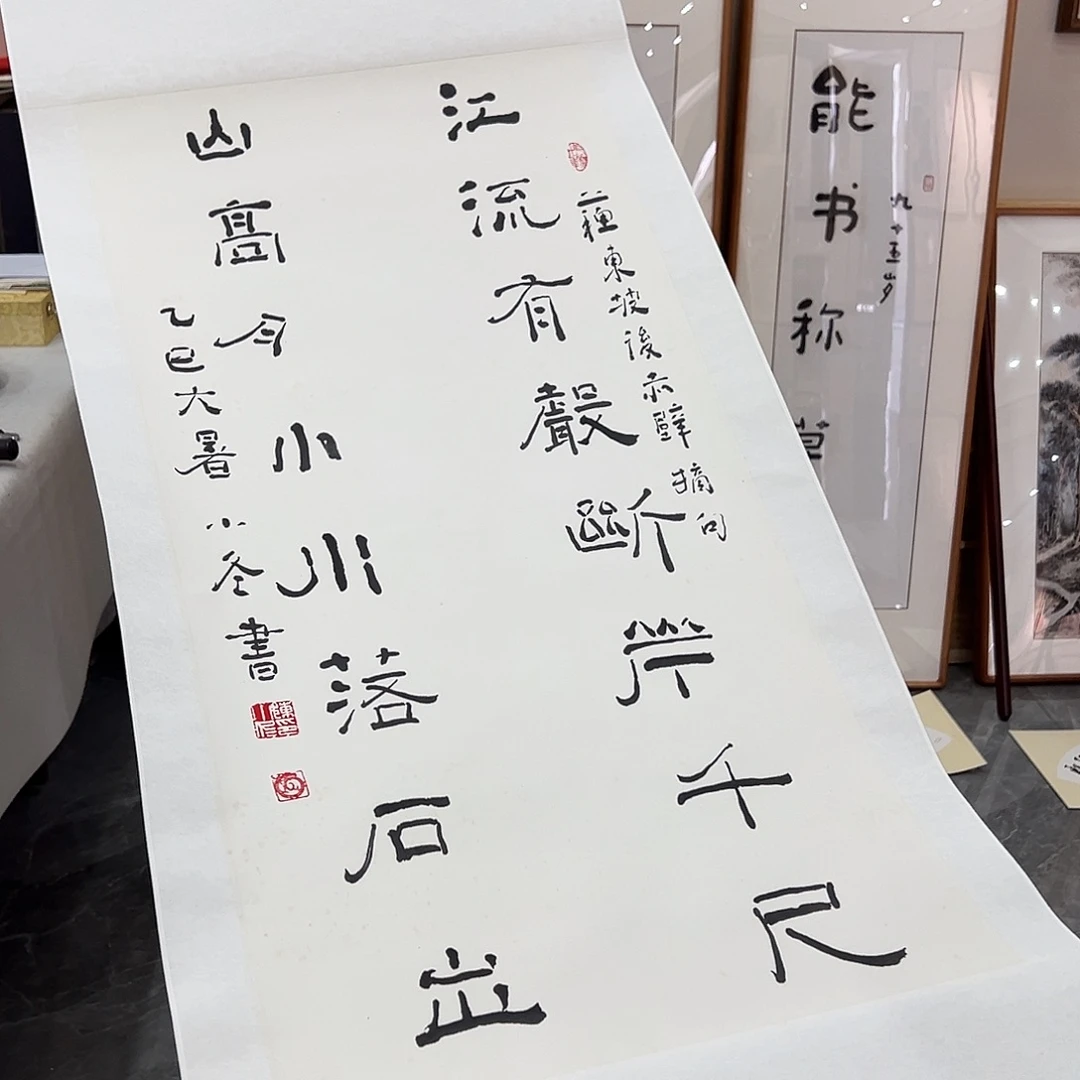 江流有聲斷岸千尺
蘇東坡後赤壁摘句
山高月小水落石出
乙巳大暑小書
能书称
九十五岁